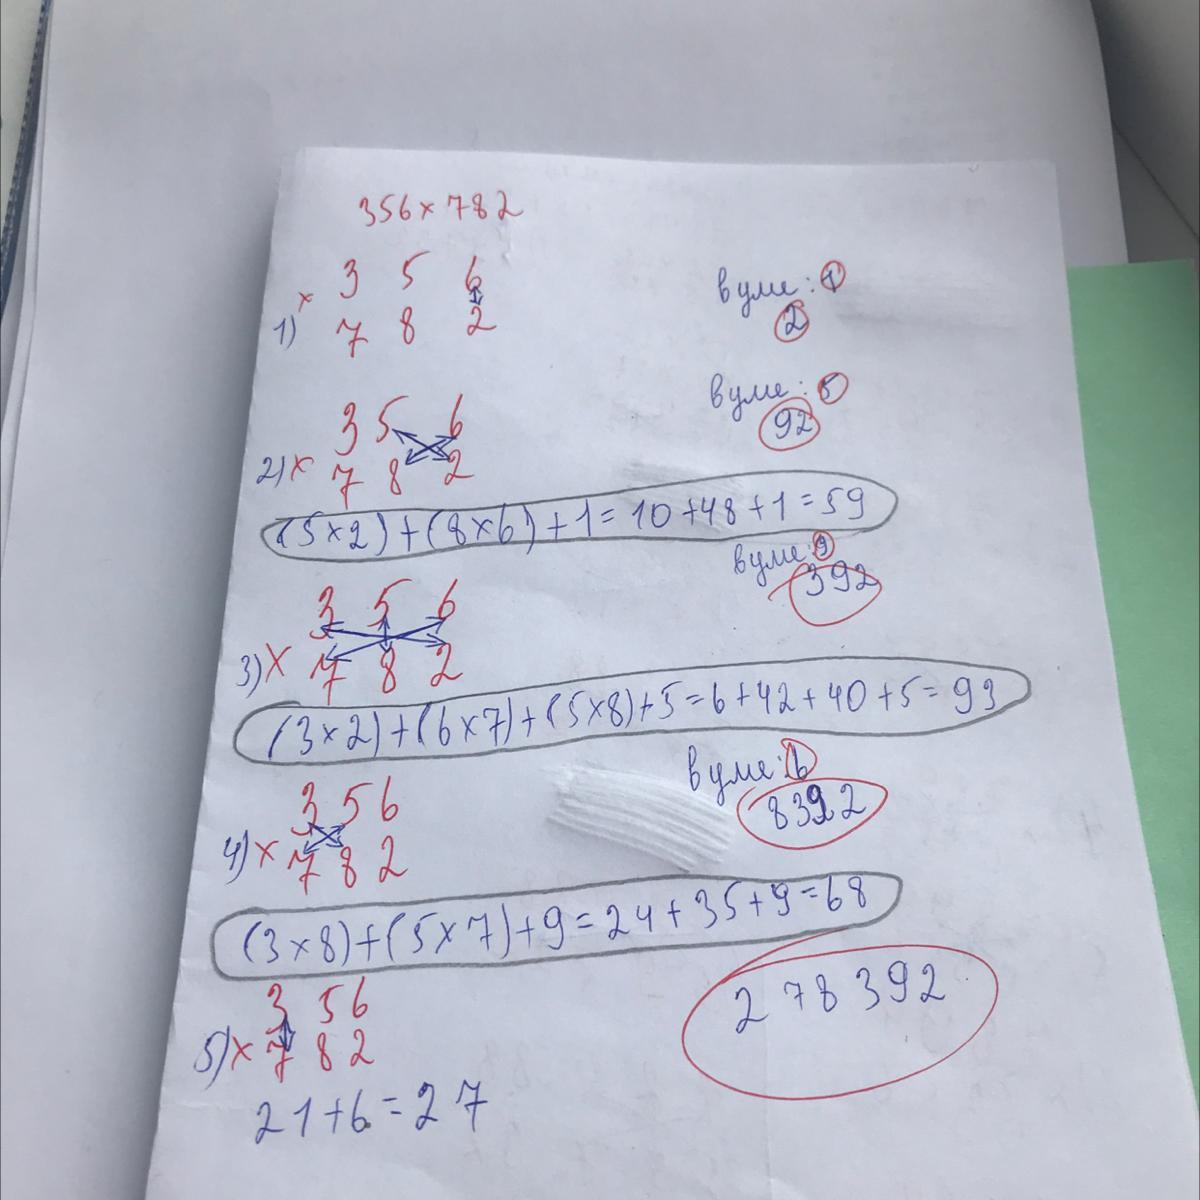 356 × 782
3 5 6
в уме: 1
1) × 7 8 2
2
в уме: 5
3 5 6
92
2) × 7 8 2
(5×2)+(8×6)+1=10+48+1=59
в уме: 9
392
3 5 6
3) × 7 8 2
(3×2)+(6×7)+(5×8)+5=6+42+40+5=93
в уме: 6
3 5 6
8392
4) × 7 8 2
(3×8)+(5×7)+9=24+35+9=68
3 5 6
278392
5) × 7 8 2
21+6=27